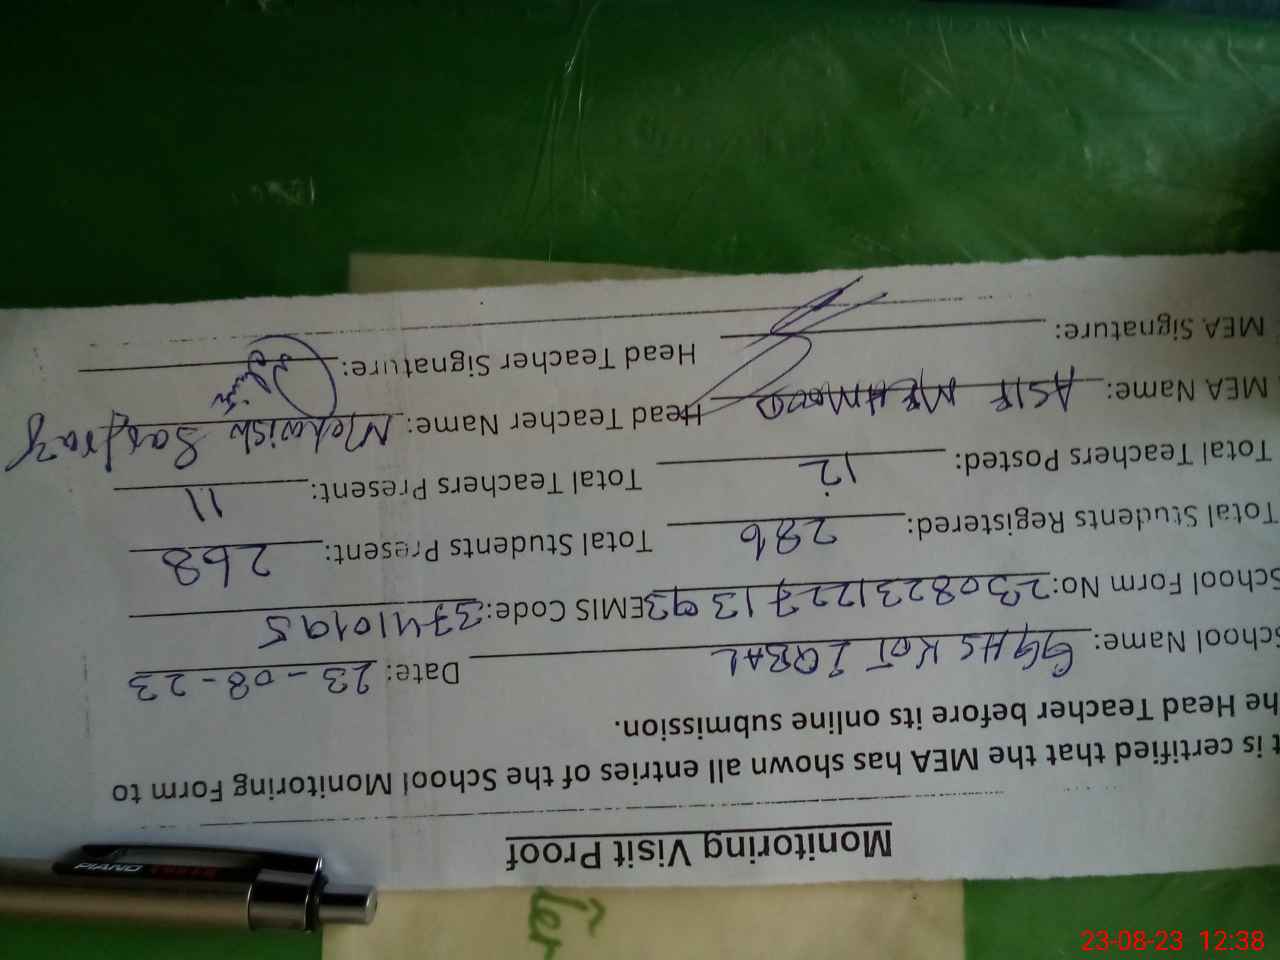 Monitoring Visit Proof
t is certified that the MEA has shown all entries of the School Monitoring Form to
he Head Teacher before its online submission.
School Name: GGHS KOT IQBAL Date: 23-08-23
School Form No: 23082312271393 EMIS Code: 37410195
Total Students Registered: 286 Total Students Present: 268
Total Teachers Posted: 12 Total Teachers Present: 11
MEA Name: ASIF MEHMOOD Head Teacher Name: Mehwish Sarfraz
MEA Signature: Head Teacher Signature:
PIANO
23-08-23 12:38